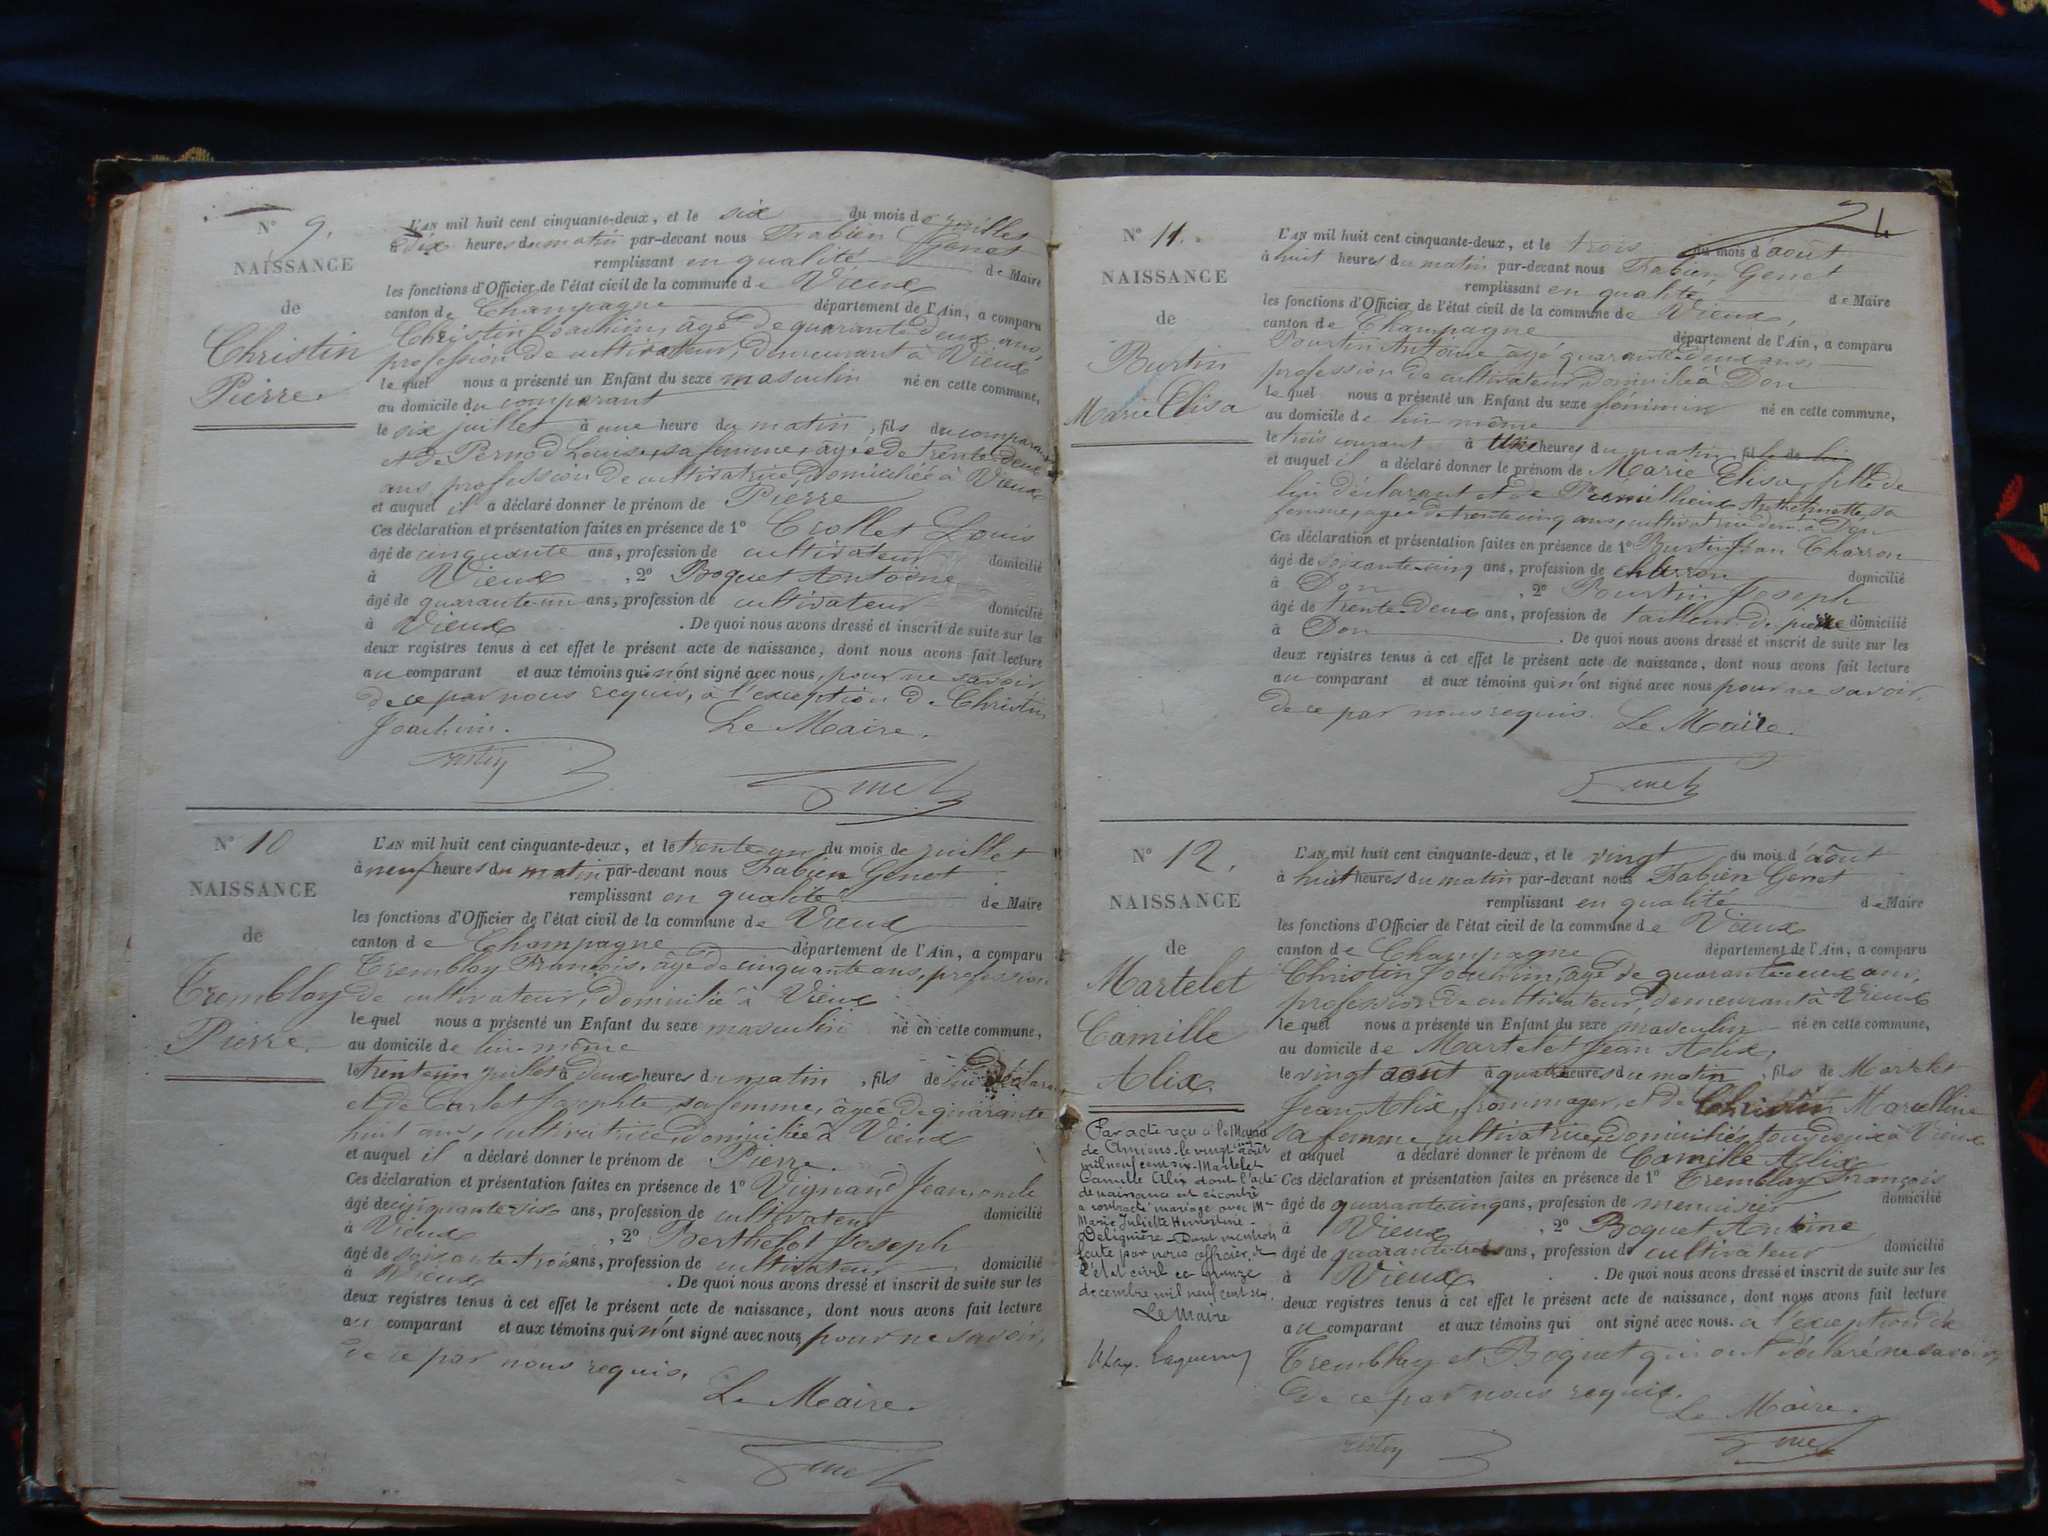 N° 9.
NAISSANCE
de
Christin
Pierre.
L'AN mil huit cent cinquante-deux, et le six du mois de juillet
à dix heures du matin par-devant nous Fabien Genet
remplissant en qualité de Maire
les fonctions d'Officier de l'état civil de la commune de Vieux
canton de Champagne département de l'Ain, a comparu
Christin Joachim, âgé de quarante deux ans,
profession de cultivateur, demeurant à Vieux
lequel nous a présenté un Enfant du sexe masculin né en cette commune,
au domicile du comparant
le six juillet à une heure du matin, fils du comparant
et de Pernod Louise, sa femme, âgée de trente deux
ans, profession de cultivatrice, domiciliée à Vieux
et auquel il a déclaré donner le prénom de Pierre
Ces déclaration et présentation faites en présence de 1° Crollet Louis
âgé de cinquante ans, profession de cultivateur domicilié
à Vieux, 2° Boquet Antoine
âgé de quarante-un ans, profession de cultivateur domicilié
à Vieux. De quoi nous avons dressé et inscrit de suite sur les
deux registres tenus à cet effet le présent acte de naissance, dont nous avons fait lecture
au comparant et aux témoins qui n'ont signé avec nous, pour ne savoir
de ce par nous requis, à l'exception de Christin
Joachim. Le Maire.
Genet
N° 10
NAISSANCE
de
Tremblay
Pierre.
L'AN mil huit cent cinquante-deux, et le trente un du mois de juillet
à neuf heures du matin par-devant nous Fabien Genet
remplissant en qualité de Maire
les fonctions d'Officier de l'état civil de la commune de Vieux
canton de Champagne département de l'Ain, a comparu
Tremblay François, âgé de cinquante ans, profession
de cultivateur, domicilié à Vieux
lequel nous a présenté un Enfant du sexe masculin né en cette commune,
au domicile de lui-même
le trente un juillet à deux heures du matin, fils de lui déclarant
et de Carlet Josephte, sa femme, âgée de quarante
huit ans, cultivatrice, domiciliée à Vieux
et auquel il a déclaré donner le prénom de Pierre.
Ces déclaration et présentation faites en présence de 1° Vignand
âgé de cinquante-six ans, profession de cultivateur domicilié
à Vieux, 2° Berthelot Joseph
âgé de soixante-trois ans, profession de cultivateur domicilié
à Vieux. De quoi nous avons dressé et inscrit de suite sur les
deux registres tenus à cet effet le présent acte de naissance, dont nous avons fait lecture
au comparant et aux témoins qui n'ont signé avec nous pour ne savoir,
de ce par nous requis.
Le Maire.
Genet
N° 11.
NAISSANCE
de
Burtin
Marie Elisa
L'AN mil huit cent cinquante-deux, et le trois du mois d'août
à huit heures du matin par-devant nous Fabien Genet
remplissant en qualité de Maire
les fonctions d'Officier de l'état civil de la commune de Vieux,
canton de Champagne département de l'Ain, a comparu
Bourtin Antoine âgé quarante-deux ans,
profession de cultivateur domicilié à Don
lequel nous a présenté un Enfant du sexe féminin né en cette commune,
au domicile de lui même
le trois courant à une heures du matin, fil de
et auquel il a déclaré donner le prénom de Marie Elisa, fille de
lui déclarant et de sa
femme, âgée de trente cinq ans, cultivatrice à Don
Ces déclaration et présentation faites en présence de 1° Burtin Jean Charron
âgé de soixante-cinq ans, profession de charron domicilié
à Don, 2° Bourtin Joseph
âgé de trente-deux ans, profession de tailleur de pierre domicilié
à Don. De quoi nous avons dressé et inscrit de suite sur les
deux registres tenus à cet effet le présent acte de naissance, dont nous avons fait lecture
au comparant et aux témoins qui n'ont signé avec nous pour ne savoir,
de ce par nous requis. Le Maire.
Genet
N° 12.
NAISSANCE
de
Martelet
Camille
Alix.
Par acte reçu à la Mairie
de Amiens le vingt cinq août
mil neuf cent six Martelet
Camille Alix dont l'acte
de naissance est ci contre
a contracté mariage avec Mlle
Marie Juliette Hernestine
Delignière. Dont mention
faite par nous officier de
l'état civil ce quinze
decembre mil neuf cent six.
Le Maire
L'AN mil huit cent cinquante-deux, et le vingt du mois d'août
à huit heures du matin par-devant nous Fabien Genet
remplissant en qualité de Maire
les fonctions d'Officier de l'état civil de la commune de Vieux
canton de Champagne département de l'Ain, a comparu
Christin Joachim, âgé de quarante deux ans,
profession de cultivateur, demeurant à Vieux
lequel nous a présenté un Enfant du sexe masculin né en cette commune,
au domicile de Martelet Jean Alix,
le vingt août à quatre heures du matin, fils de Martelet
Jean Alix, frommager, et de Christin Marcelline
sa femme, cultivatrice, domiciliés tous deux à Vieux
et auquel a déclaré donner le prénom de Camille Alix
Ces déclaration et présentation faites en présence de 1° Tremblay François
âgé de quarante cinq ans, profession de menuisier domicilié
à Vieux, 2° Boquet Antoine
âgé de quarante-trois ans, profession de cultivateur domicilié
à Vieux. De quoi nous avons dressé et inscrit de suite sur les
deux registres tenus à cet effet le présent acte de naissance, dont nous avons fait lecture
au comparant et aux témoins qui ont signé avec nous. à l'exception de
Tremblay et Boquet qui ont déclaré ne savoir,
de ce par nous requis.
Le Maire.
Genet